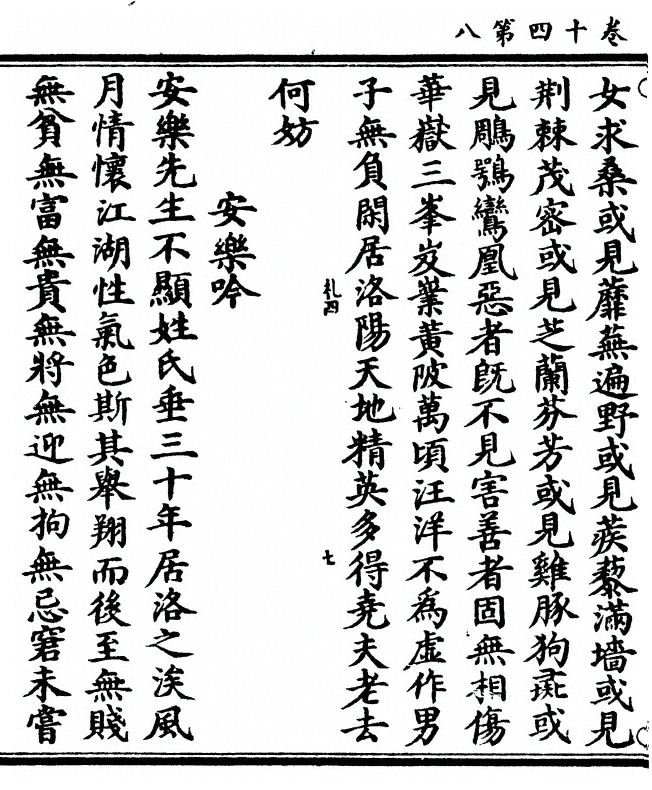 卷十四第八
女求桑或見蘼蕪遍野或見蒺藜滿墻或見
荆棘茂密或見芝蘭芬芳或見雞豚狗彘或
見鵰鶚鸞凰惡者旣不見害善者固無相傷
華嶽三峯岌嶪黃陂萬頃汪洋不爲虛作男
子無負閑居洛陽天地精英多得堯夫老去
札四
七
何妨
安樂吟
安樂先生不顯姓氏垂三十年居洛之涘風
月情懷江湖性氣色斯其舉翔而後至無賤
無貧無富無貴無將無迎無拘無忌窘未嘗